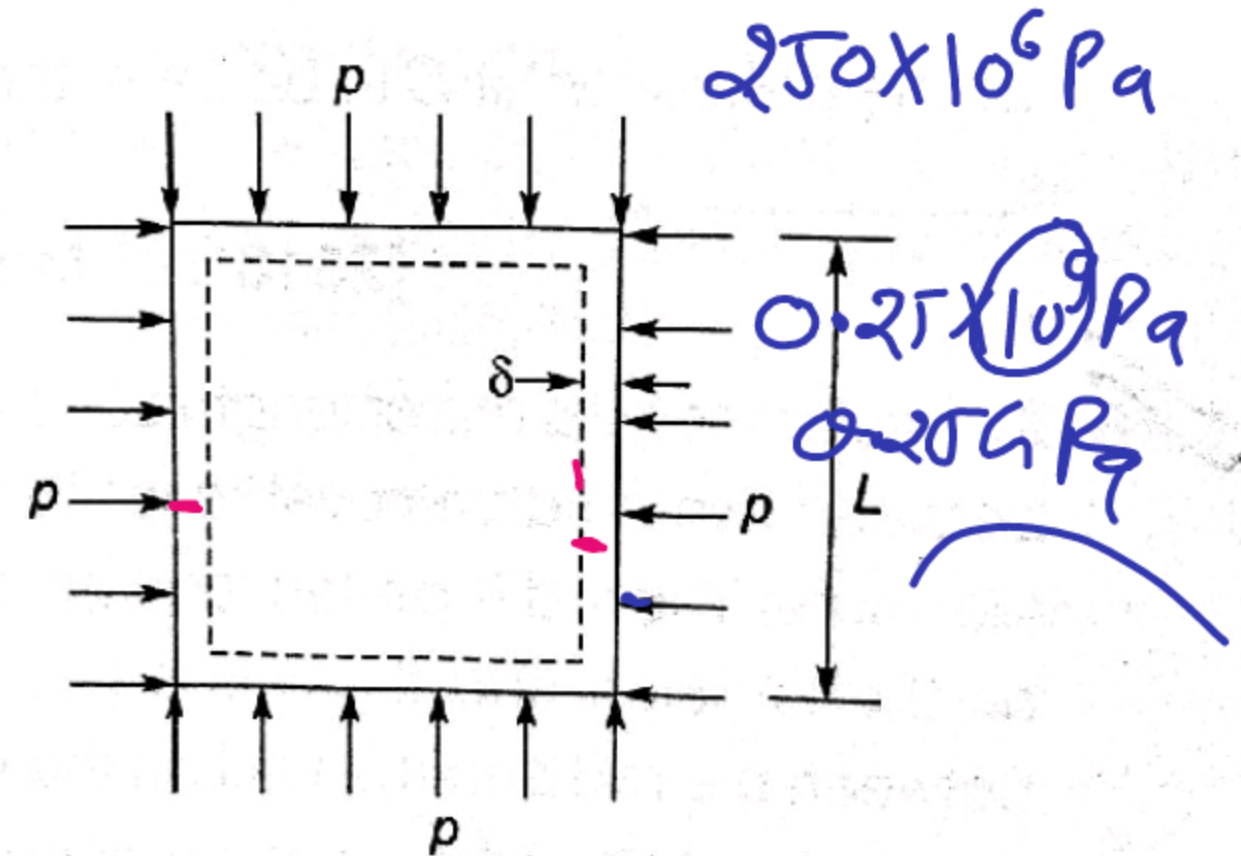 250X10⁶ Pa
p
0.25X10⁹ Pa
δ
0.25G Pa
p
p
L
p